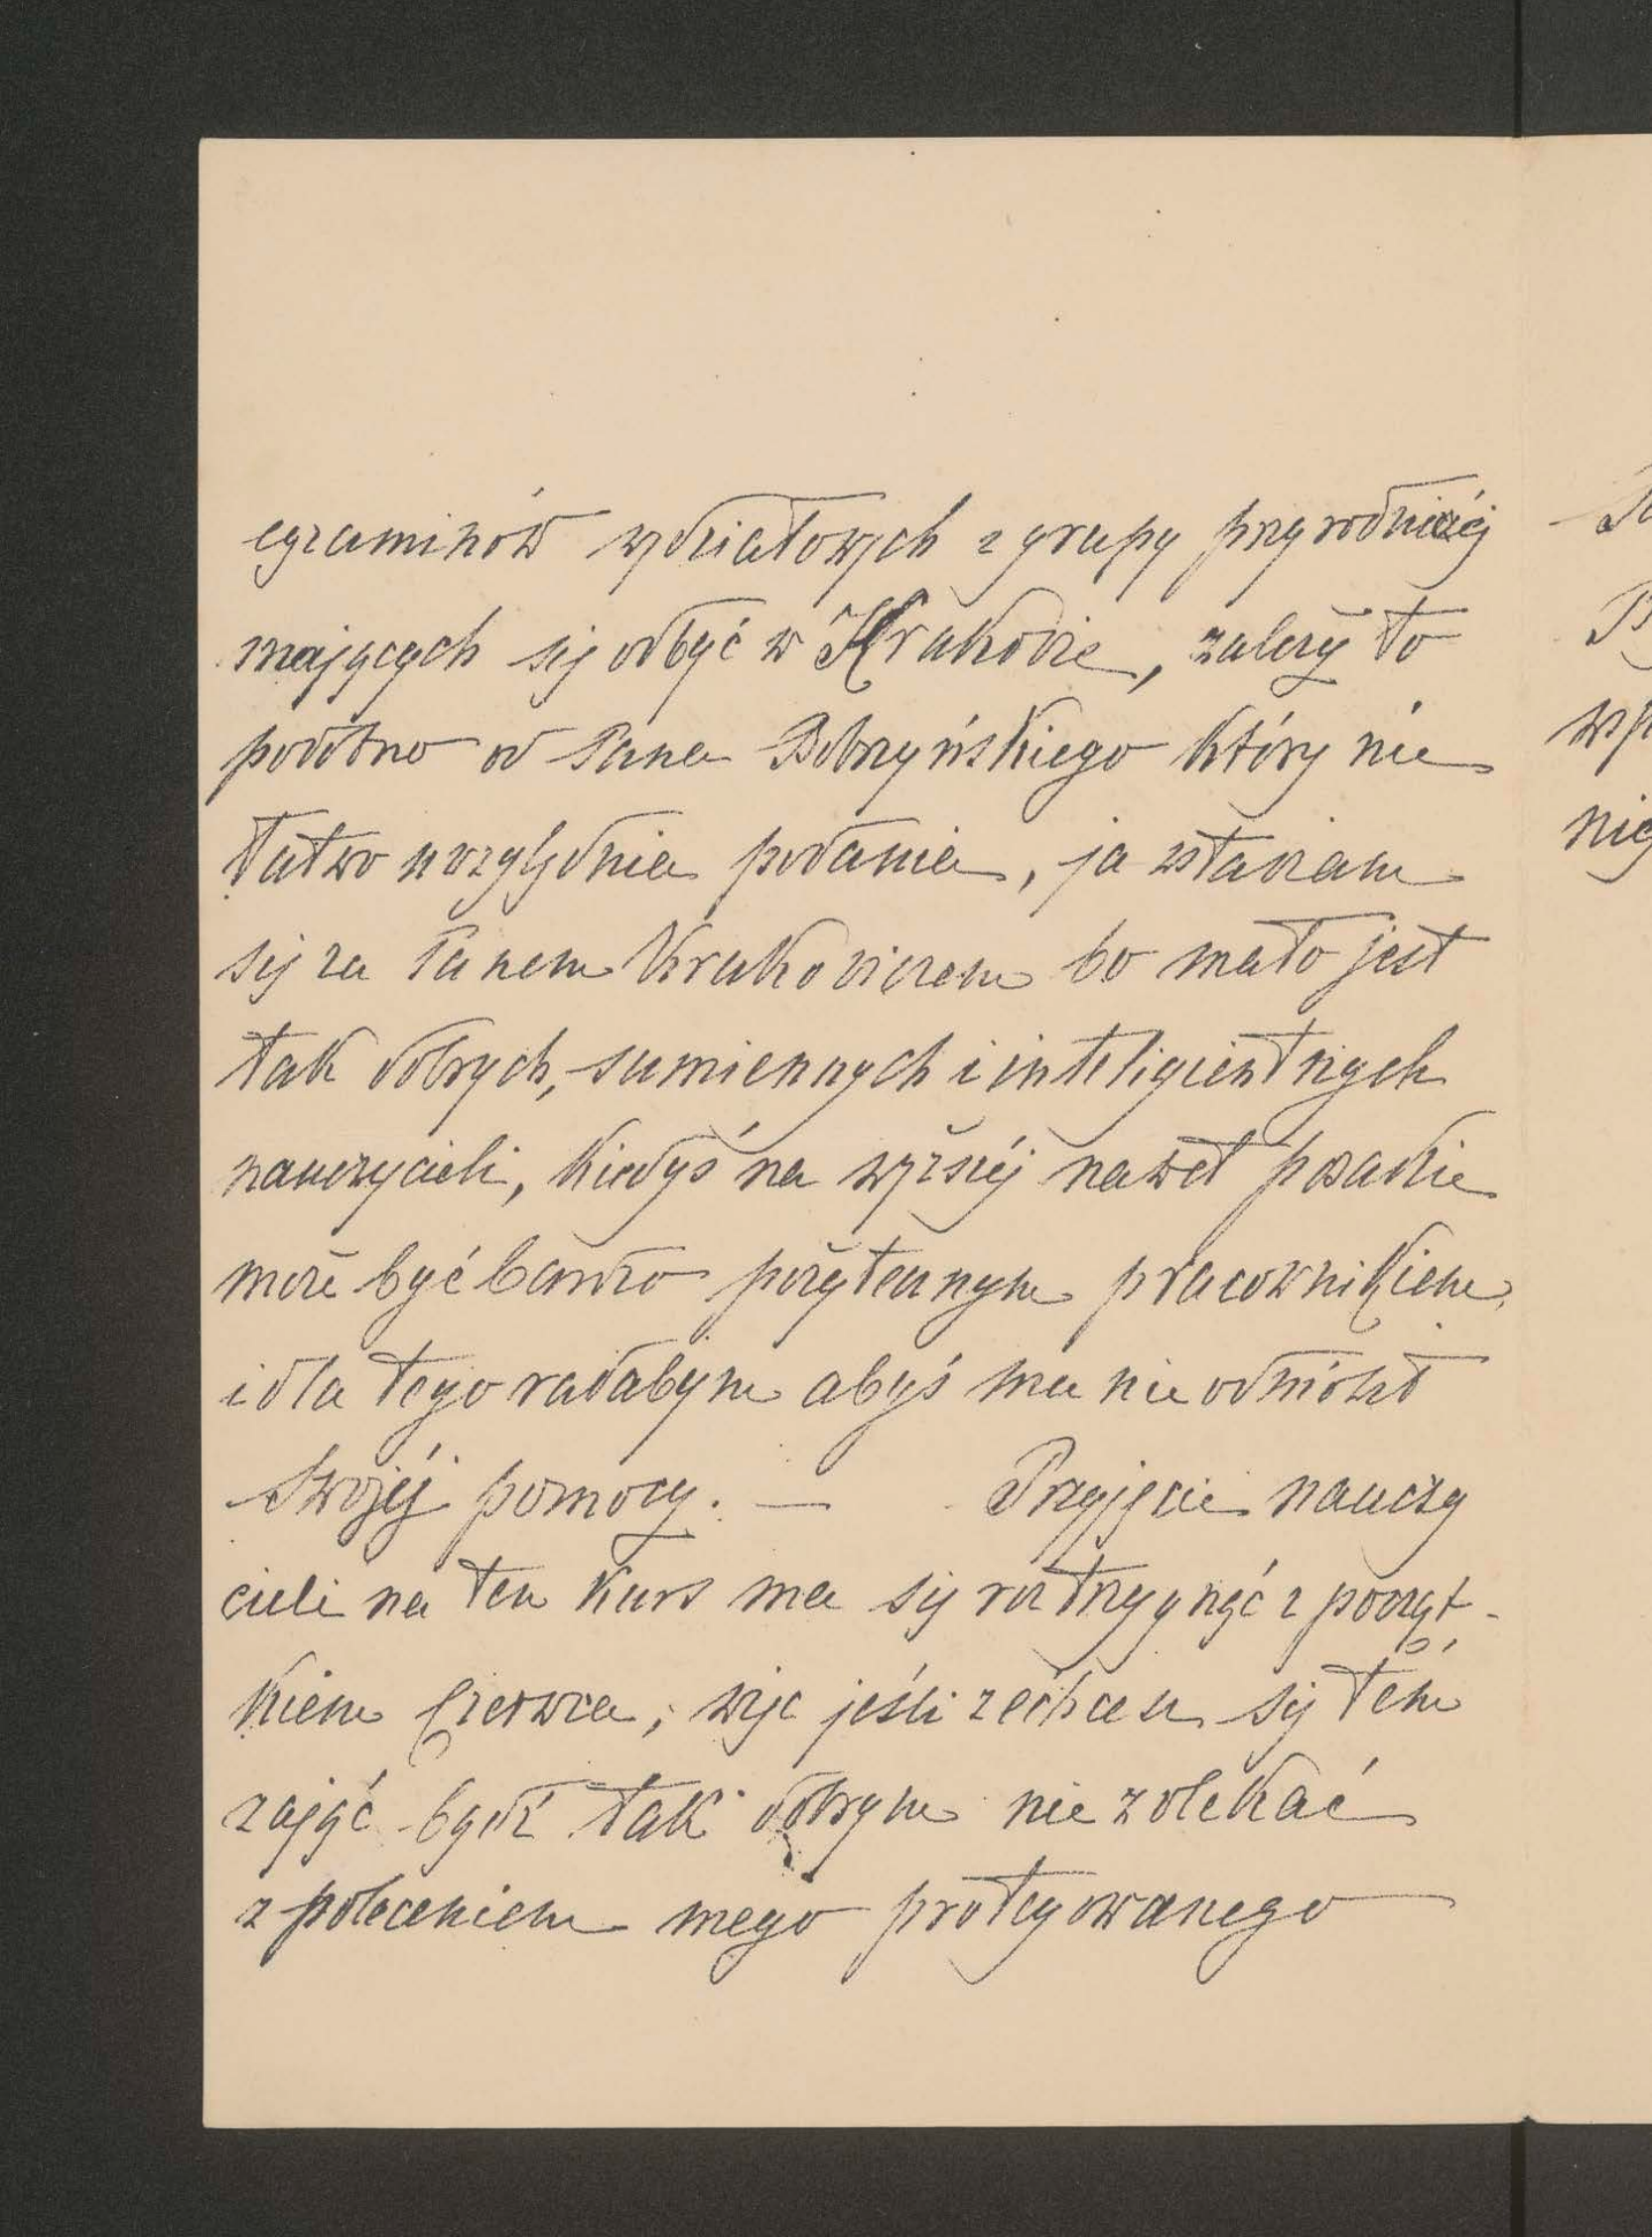 egzaminów wydziałowych z grupy przyrodniczéj
mających się odbyć w Krakowie, zależy to
podobno od Pana Bobrzyńskiego który nie
łatwo uwzględnia podania, ja wstawiam
się za Panem Krakowiczem bo mało jest
tak dobrych, sumiennych i inteligientnych
nauczycieli, kiedyś na wyższéj nawet posadzie
może być bardzo pożytecznym pracownikiem,
i dla tego radabym abyś mu nie odmówił
Swojéj pomocy. — Przyjęcie nauczy
cieli na ten kurs ma się roztrzygnąć z począt-
kiem Czerwca, więc jeśli zechcesz się tém
zająć bądź tak dobrym nie zwlekać
z poleceniem mego protegowanego